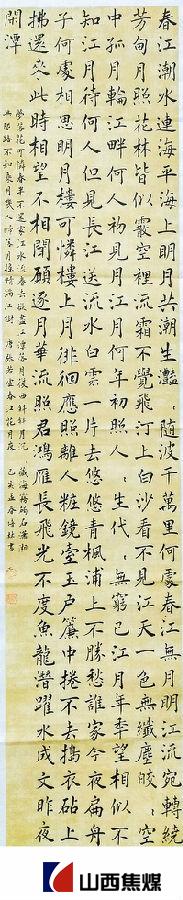 春江潮水連海平海上明月共潮生灩〻隨波千萬里何處春江無月明江流宛轉繞
芳甸月照花林皆似霰空裡流霜不覺飛汀上白沙看不見江天一色無纖塵皎〻空
中孤月輪江畔何人初見月江月何年初照人〻生代〻無窮已江月年秊望相似不
知江月待何人但見長江送流水白雲一片去悠悠青楓浦上不勝愁誰家今夜扁舟
子何處相思明月樓可憐樓上月徘徊應照離人粧鏡臺玉戶簾中捲不去搗衣砧上
拂還來此時相望不相聞願逐月華流照君鴻雁長飛光不度魚龍潛躍水成文昨夜
閒潭
夢落花可憐春半不還家江水流春去欲盡江潭落月復西斜斜月沉〻藏海霧碣石瀟湘
無限路不知乘月幾人歸落月搖情滿江樹 唐張若虛春江花月夜 己亥孟春培林書
山西焦煤